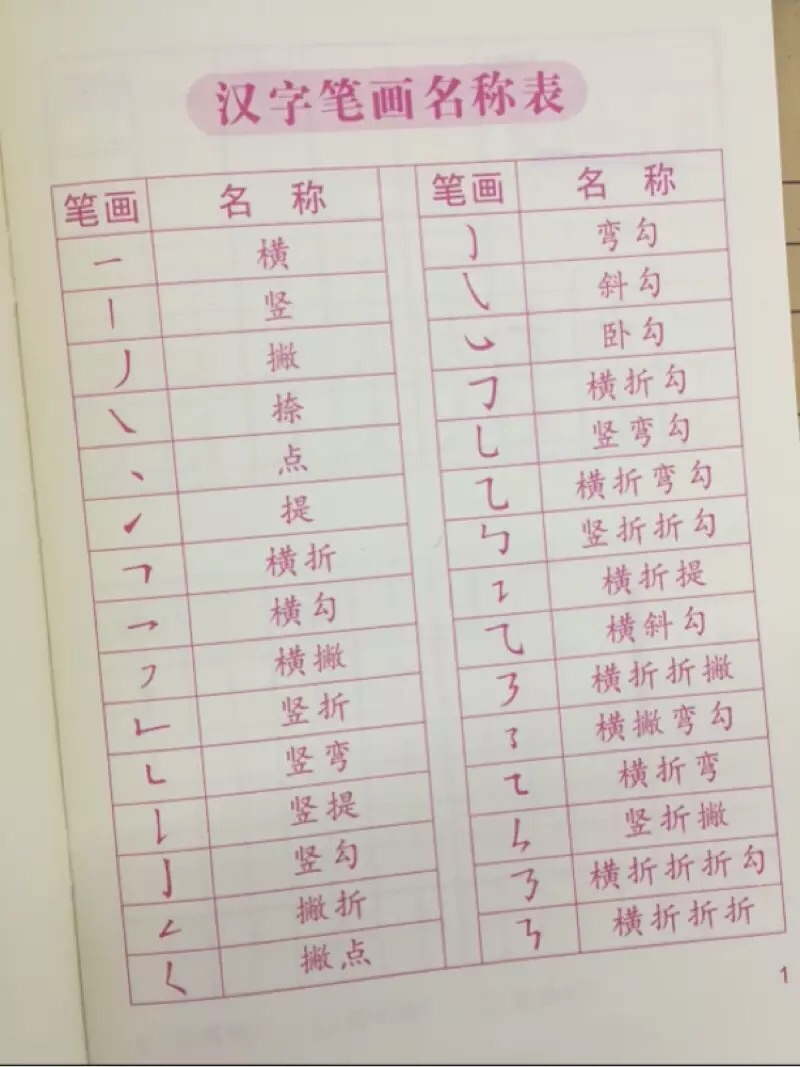 汉字笔画名称表
笔画 名称
㇐ 横
㇑ 竖
㇓ 撇
㇏ 捺
㇔ 点
㇀ 提
㇕ 横折
㇖ 横勾
㇇ 横撇
㇗ 竖折
㇄ 竖弯
㇙ 竖提
㇚ 竖勾
㇜ 撇折
㇛ 撇点
笔画 名称
㇁ 弯勾
㇂ 斜勾
㇃ 卧勾
㇆ 横折勾
㇟ 竖弯勾
㇈ 横折弯勾
㇉ 竖折折勾
㇊ 横折提
⺄ 横斜勾
㇋ 横折折撇
㇌ 横撇弯勾
㇍ 横折弯
㇞ 竖折撇
㇡ 横折折折勾
㇎ 横折折折
1